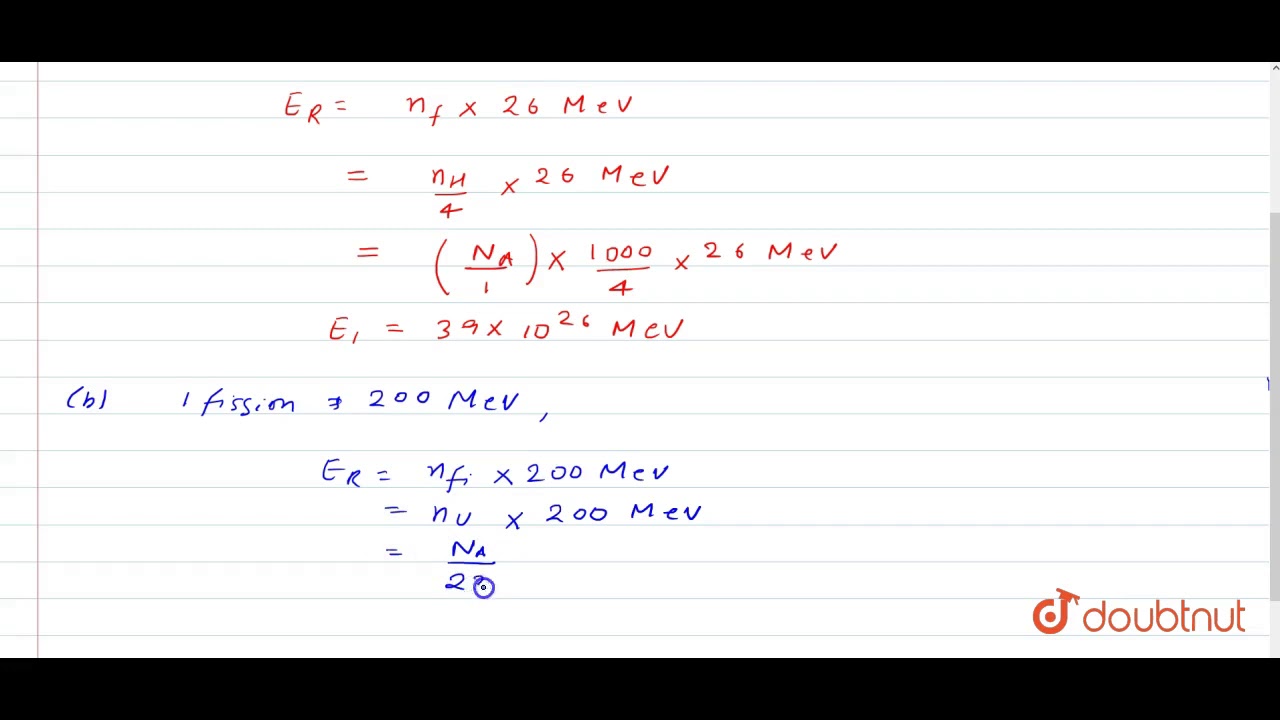 E_R = n_f × 26 MeV
= n_H/4 × 26 MeV
= (N_A/1) × 1000/4 × 26 MeV
E_1 = 39 × 10^26 MeV
(b) 1 fission → 200 MeV,
E_R = n_fi × 200 MeV
= n_U × 200 MeV
= N_A/23
doubtnut